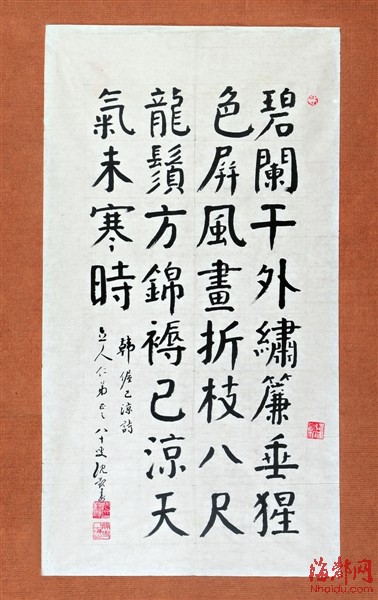 碧闌干外繡簾垂猩
色屏風畫折枝八尺
龍鬚方錦褥已涼天
氣未寒時
韓偓已涼詩
立人仁弟正之 八十叟沈覲壽
海都网
Nhaidu.com